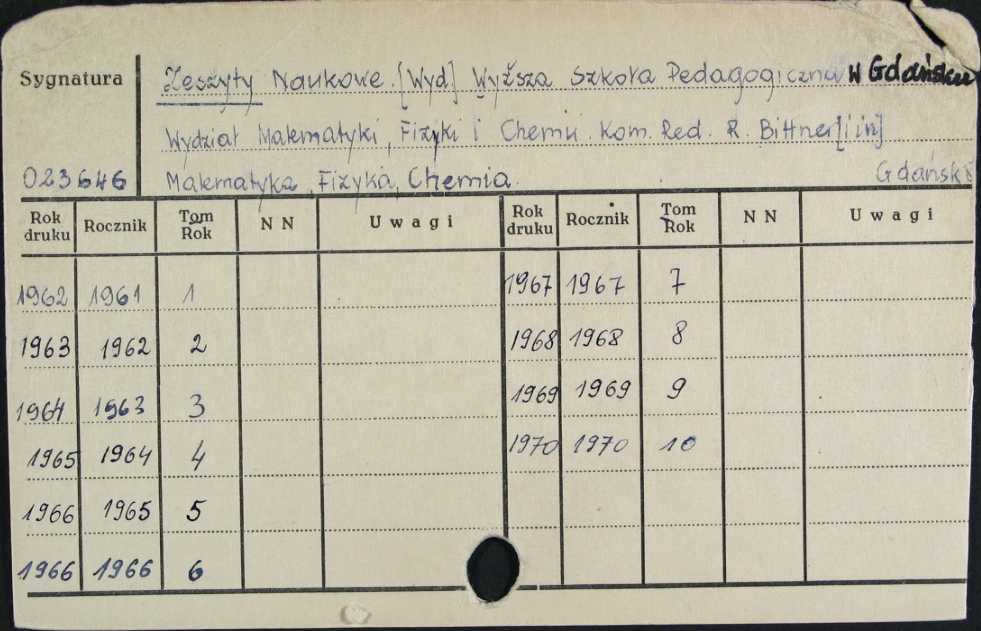 Sygnatura
Zeszyty Naukowe. [Wyd] Wyższa Szkoła Pedagogiczna w Gdańsku
Wydział Matematyki, Fizyki i Chemii. Kom. Red. R. Bittner [i in]
023646 Matematyka, Fizyka, Chemia. Gdańsk
Rok druku Rocznik Tom Rok N N Uwagi Rok druku Rocznik Tom Rok N N Uwagi
1962 1961 1 1967 1967 7
1963 1962 2 1968 1968 8
1964 1963 3 1969 1969 9
1965 1964 4 1970 1970 10
1966 1965 5
1966 1966 6